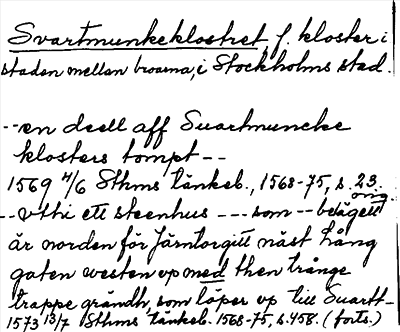 Svartmunkeklostret, f. kloster i
staden mellan broarna, i Stockholms stad.
--en deell aff Suartmuncke
klosters tompt--
1569 4/6 Sthms tänkeb., 1568-75, s. 23.
--vthi ett steenhus --- som -- belägett
är norden för Järntorgitt näst Lång
gaten westen vp med then trånge
trappe grändh, som löper vp till Suartt-
1573 13/7 Sthms tänkeb. 1568-75, s. 458. (forts.)